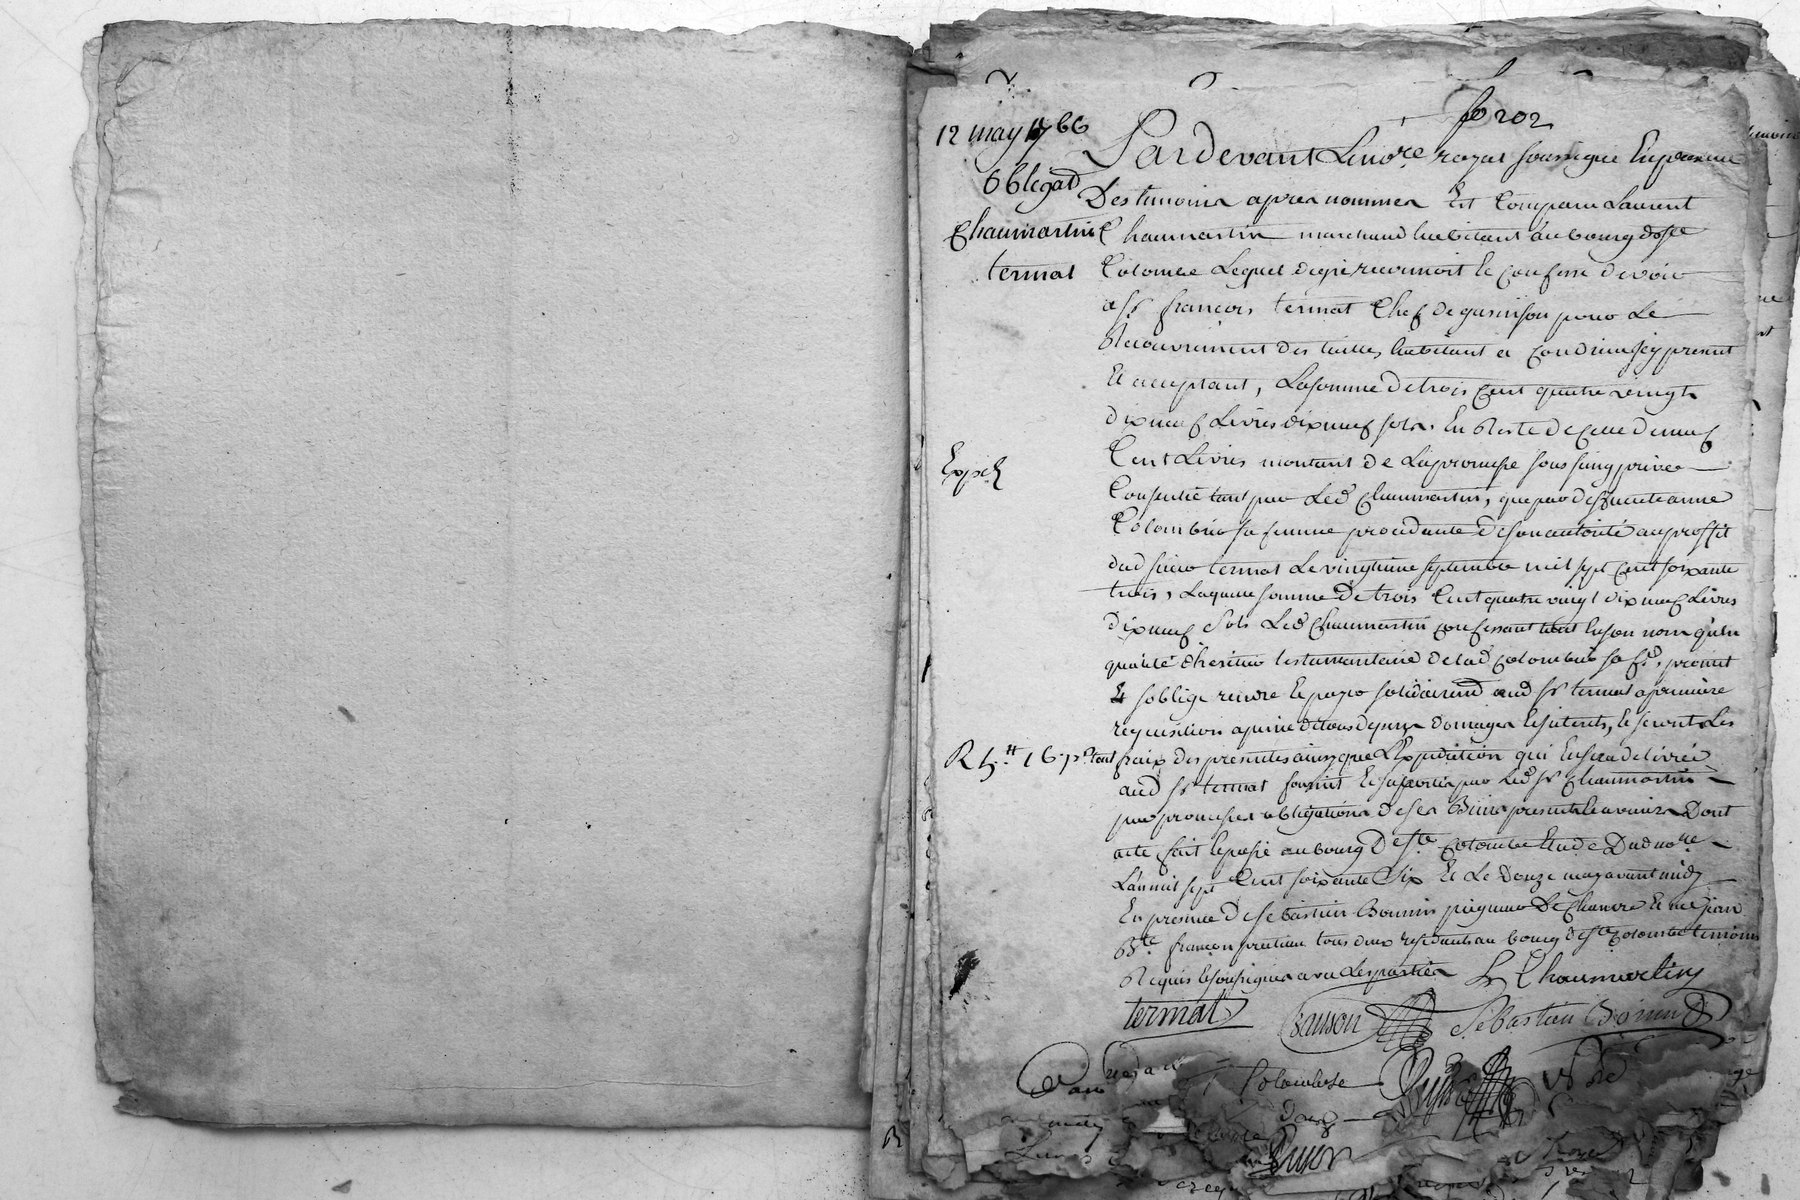 fo 202
12 may 1766
obligaõn
Chaumartin
termat
Expée
R 5.tt 16.s
Pardevant Le no.re royal soussigné En presence
Des temoins apres nommes Est Comparu Laurent
Chaumartin marchand habitant au bourg de Ste
Colombe Lequel de gré reconnoit et confesse devoir
a Sr françois termat Chef de garnison pour Le
Recouvrement des tailles, habitant a Condrieu icy present
Et acceptant, La somme de trois Cent quatre vingt
dix neuf Livres dix neuf sols. En Reste de Celle de neuf
Cent Livres montant de La promesse sous seing privée
Consentie tant par Led Chaumartin, que par deffunte anne
Colombier sa femme procedante de son autorité au proffit
dud sieur termat Le vingt septembre mil sept Cent soixante
trois, Laquelle somme De trois Cent quatre vingt dix neuf Livres
dix neuf Sols Led Chaumartin tant En son nom qu'en
qualité d'heritier testamentaire de lad Colombier sa fe., promet
Et s'oblige rendre Et payer solidairemt aud Sr termat a premiere
requisition a peine de tous depens domages Et interets, Et seront Les
fraix des presentes ainsy que L'Expedition qui En sera delivrée
aud Sr termat fournit Et suportés par Led Sr Chaumartin
par promesses obligations de ses Biens presents Et avenirs Dont
acte fait Et passé au bourg De Ste Colombe Etude Dud no.re
L'an mil sept Cent soixante Six Et Le Douze may avant midy
En presence De Sebastien Bonnin peigneur De Chanvre Et me Jean
Bte françon praticien tous deux residents au bourg de Ste Colombe temoins
Requis Et soussignés avec Les parties L Chaumartin
termat
Sebastien Bonnin
Colombe